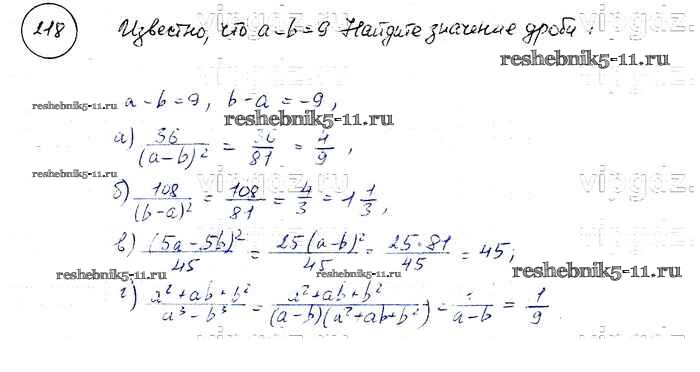 218 Известно, что a-b=9 Найдите значение дроби:
reshebnik5-11.ru
reshebnik5-11.ru a-b=9, b-a=-9,
reshebnik5-11.ru
vipgdz.ru
а) 36/(a-b)² = 36/81 = 4/9,
reshebnik5-11.ru
vipgdz.ru vipgdz.ru
б) 108/(b-a)² = 108/81 = 4/3 = 1 1/3,
в) (5a-5b)²/45 = 25(a-b)²/45 = 25·81/45 = 45;
reshebnik5-11.ru reshebnik5-11.ru reshebnik5-11.ru
г) a²+ab+b²/a³-b³ = a²+ab+b²/(a-b)(a²+ab+b²) = 1/a-b = 1/9